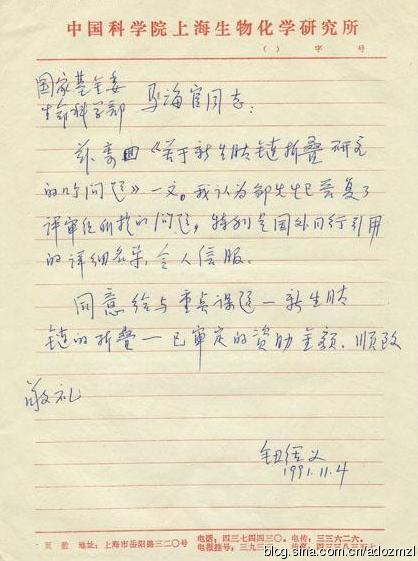 中国科学院上海生物化学研究所
( ) 字 号
国家基金委
生命科学部 同志：
兹寄回《关于新生肽链折叠研究
的 问题》一文。我认为邹先生已答复了
评审组所提的问题，特别是国外同行引用
的详细名单，令人信服。
同意给与重点课题—新生肽
链的折叠—已审定的资助金额。顺致
敬礼
钮经义
1991.11.4
地址：上海市岳阳路三二〇号 电话：四三七四四三〇．电传：三三六二六．
电报挂号：
blog.sina.com.cn/adozmzl